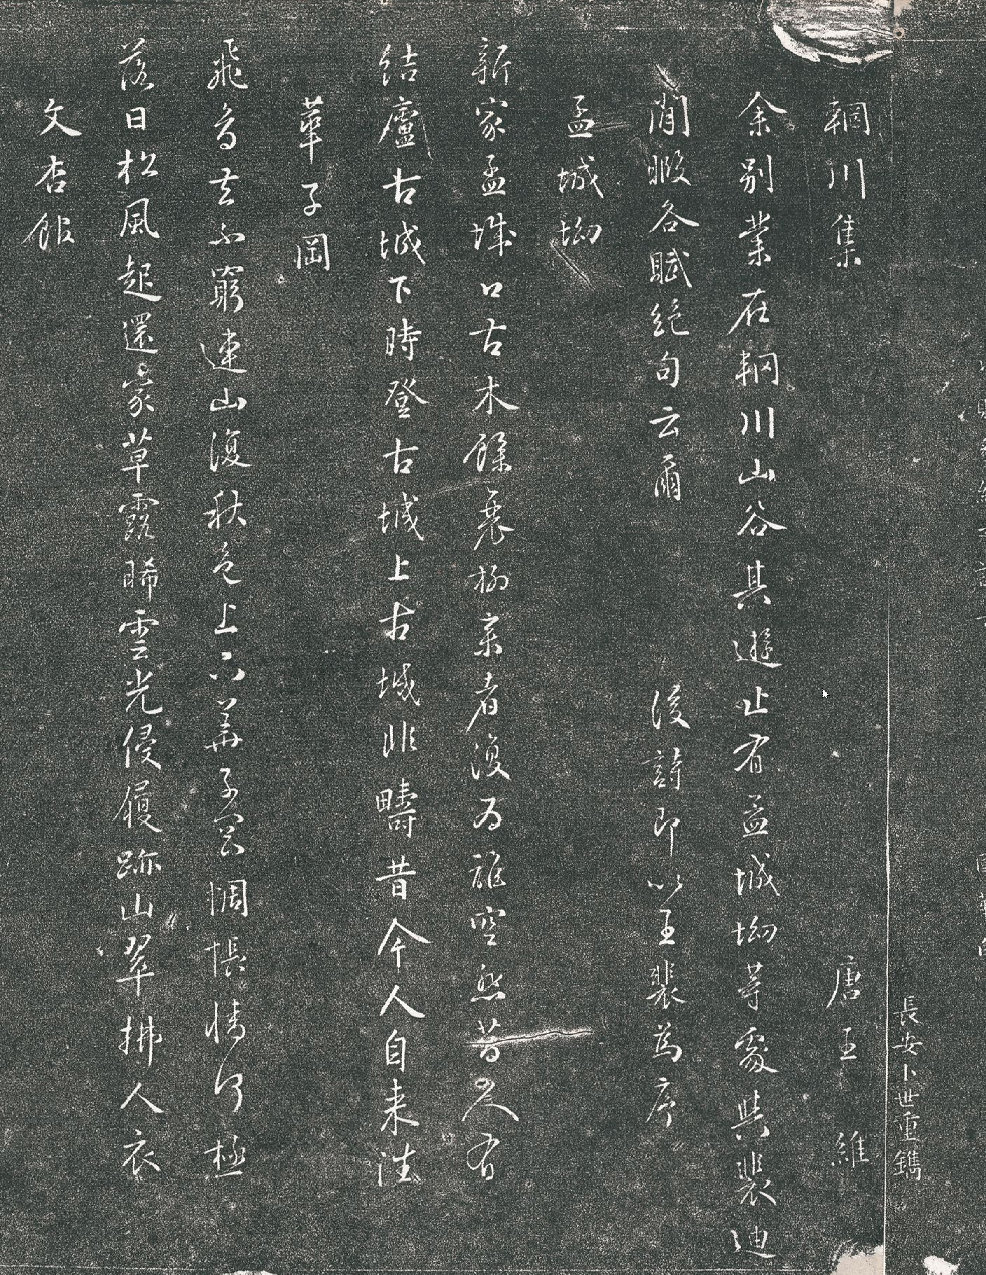 長安卜世重鐫
輞川集 唐王維
余別業在輞川山谷其遊止有孟城坳等處與裴迪
閒暇各賦絕句云爾 後詩即以王裴為序
孟城坳
新家孟城口古木餘衰柳來者復為誰空悲昔人有
結廬古城下時登古城上古城非疇昔今人自来往
華子岡
飛鳥去不窮連山復秋色上下華子岡惆悵情何極
落日松風起還家草露晞雲光侵履跡山翠拂人衣
文杏館